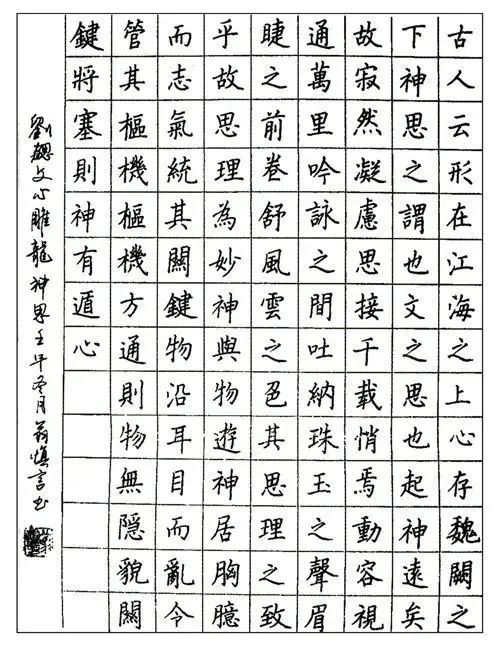 古人云形在江海之上心存魏闕之
下神思之謂也文之思也起神遠矣
故寂然凝慮思接千載悄焉動容視
通萬里吟詠之間吐納珠玉之聲眉
睫之前卷舒風雲之色其思理之致
乎故思理為妙神與物遊神居胸臆
而志氣統其關鍵物沿耳目而亂令
管其樞機樞機方通則物無隱貌關
鍵將塞則神有遁心
劉勰文心雕龍神思壬午冬月慎言书